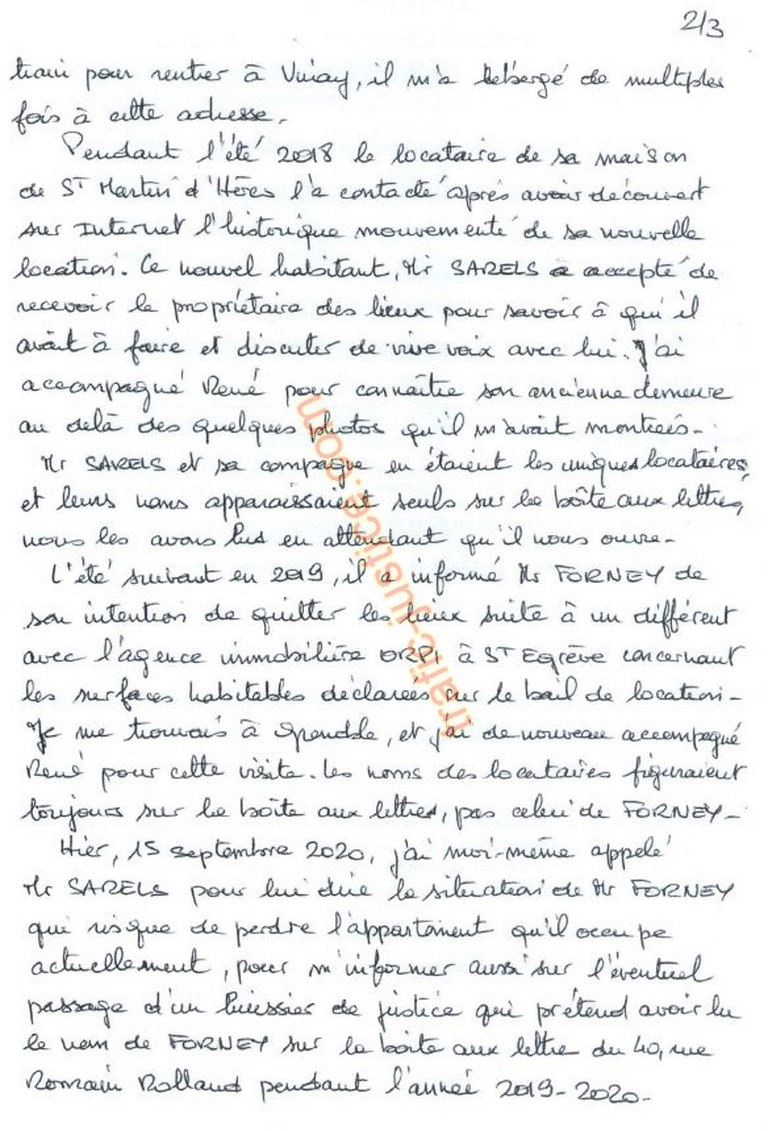 2/3
train pour rentrer à Vinay, il m'a hébergé de multiples
fois à cette adresse.
Pendant l'été 2018 le locataire de sa maison
de St Martin d'Hères l'a contacté après avoir découvert
sur Internet l'historique mouvementé de sa nouvelle
location. Ce nouvel habitant, Mr SARELS a accepté de
recevoir le propriétaire des lieux pour savoir à qui il
avait à faire et discuter de vive voix avec lui. J'ai
accompagné René pour connaître son ancienne demeure
au delà des quelques photos qu'il m'avait montrées.
Mr SARELS et sa compagne en étaient les uniques locataires,
et leurs noms apparaissaient seuls sur la boîte aux lettres,
nous les avons lus en attendant qu'il nous ouvre.
L'été suivant en 2019, il a informé Mr FORNEY de
son intention de quitter les lieux suite à un différent
avec l'agence immobilière ORPI à St Egrève concernant
les surfaces habitables déclarées sur le bail de location.
Je me trouvais à Grenoble, et j'ai de nouveau accompagné
René pour cette visite. Les noms des locataires figuraient
toujours sur la boîte aux lettres, pas celui de FORNEY.
Hier, 15 septembre 2020, j'ai moi-même appelé
Mr SARELS pour lui dire la situation de Mr FORNEY
qui risque de perdre l'appartement qu'il occupe
actuellement, pour m'informer aussi sur l'éventuel
passage d'un huissier de justice qui prétend avoir lu
le nom de FORNEY sur la boîte aux lettre du 40, rue
Romain Rolland pendant l'année 2019-2020.
trafic-justice.com